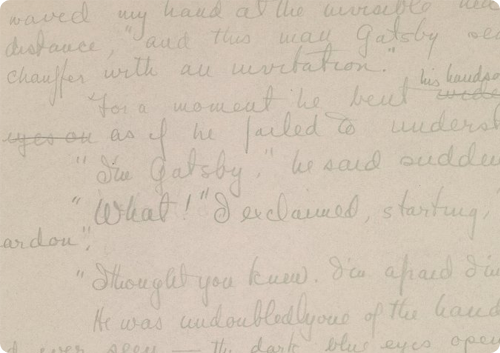 waved my hand at the invisible
distance, "and this man Gatsby
chauffer with an invitation."
his
For a moment he bent
eyes on as if he failed to
"I'm Gatsby," he said
"What!" I exclaimed, starting,
ardon".
"I thought you knew. I'm afraid I'm
He was undoubtedly one of the
ever seen — the dark blue eyes